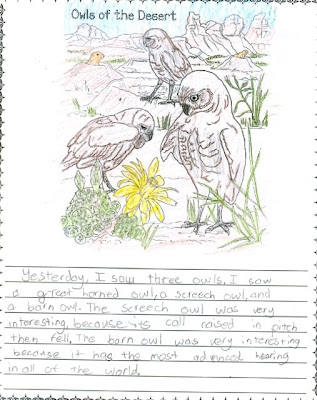 Owls of the Desert
Yesterday, I saw three owls. I saw
a great horned owl, a screech owl, and
a barn owl. The screech owl was very
interesting, because its call raised in pitch
then fell. The barn owl was very interesting
because it has the most advanced hearing
in all of the world.